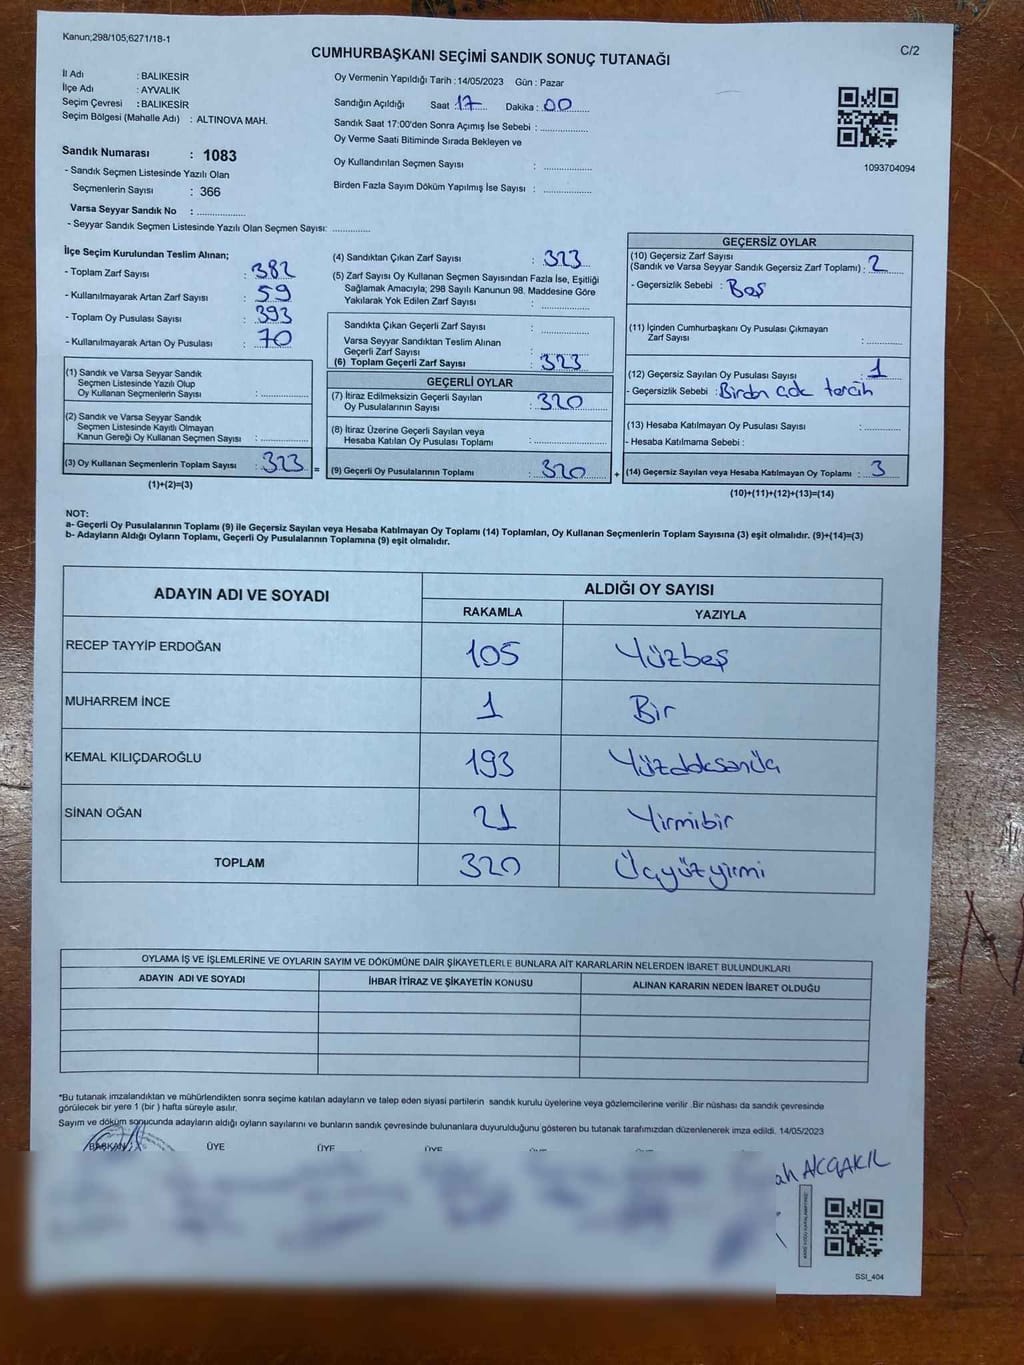 Kanun;298/105;6271/18-1
C/2
CUMHURBAŞKANI SEÇİMİ SANDIK SONUÇ TUTANAĞI
İl Adı : BALIKESİR
İlçe Adı : AYVALIK
Seçim Çevresi : BALIKESİR
Seçim Bölgesi (Mahalle Adı) : ALTINOVA MAH.
Sandık Numarası : 1083
- Sandık Seçmen Listesinde Yazılı Olan
Seçmenlerin Sayısı : 366
Varsa Seyyar Sandık No : ..................
- Seyyar Sandık Seçmen Listesinde Yazılı Olan Seçmen Sayısı: ..............
Oy Vermenin Yapıldığı Tarih : 14/05/2023 Gün : Pazar
Sandığın Açıldığı Saat : 17 Dakika : 00
Sandık Saat 17:00'den Sonra Açımış İse Sebebi : ..................
Oy Verme Saati Bitiminde Sırada Bekleyen ve
Oy Kullandırılan Seçmen Sayısı : ..................
Birden Fazla Sayım Döküm Yapılmış İse Sayısı : ..................
1093704094
İlçe Seçim Kurulundan Teslim Alınan;
- Toplam Zarf Sayısı : 382
- Kullanılmayarak Artan Zarf Sayısı : 59
- Toplam Oy Pusulası Sayısı : 393
- Kullanılmayarak Artan Oy Pusulası : 70
(1) Sandık ve Varsa Seyyar Sandık
Seçmen Listesinde Yazılı Olup
Oy Kullanan Seçmenlerin Sayısı : ..................
(2) Sandık ve Varsa Seyyar Sandık
Seçmen Listesinde Kayıtlı Olmayan
Kanun Gereği Oy Kullanan Seçmen Sayısı : ..................
(3) Oy Kullanan Seçmenlerin Toplam Sayısı : 323 =
(1)+(2)=(3)
(4) Sandıktan Çıkan Zarf Sayısı : 323
(5) Zarf Sayısı Oy Kullanan Seçmen Sayısından Fazla İse, Eşitliği
Sağlamak Amacıyla; 298 Sayılı Kanunun 98. Maddesine Göre
Yakılarak Yok Edilen Zarf Sayısı : ..................
Sandıkta Çıkan Geçerli Zarf Sayısı : ..................
Varsa Seyyar Sandıktan Teslim Alınan
Geçerli Zarf Sayısı : ..................
(6) Toplam Geçerli Zarf Sayısı : 323
GEÇERLİ OYLAR
(7) İtiraz Edilmeksizin Geçerli Sayılan
Oy Pusulalarının Sayısı : 320
(8) İtiraz Üzerine Geçerli Sayılan veya
Hesaba Katılan Oy Pusulası Toplamı : ..................
(9) Geçerli Oy Pusulalarının Toplamı : 320 +
GEÇERSİZ OYLAR
(10) Geçersiz Zarf Sayısı
(Sandık ve Varsa Seyyar Sandık Geçersiz Zarf Toplamı) : 2
- Geçersizlik Sebebi : Boş
(11) İçinden Cumhurbaşkanı Oy Pusulası Çıkmayan
Zarf Sayısı : ..............
(12) Geçersiz Sayılan Oy Pusulası Sayısı : 1
- Geçersizlik Sebebi : Birden çok tercih
(13) Hesaba Katılmayan Oy Pusulası Sayısı : ..............
- Hesaba Katılmama Sebebi :
(14) Geçersiz Sayılan veya Hesaba Katılmayan Oy Toplamı : 3
(10)+(11)+(12)+(13)=(14)
NOT:
a- Geçerli Oy Pusulalarının Toplamı (9) ile Geçersiz Sayılan veya Hesaba Katılmayan Oy Toplamı (14) Toplamları, Oy Kullanan Seçmenlerin Toplam Sayısına (3) eşit olmalıdır. (9)+(14)=(3)
b- Adayların Aldığı Oyların Toplamı, Geçerli Oy Pusulalarının Toplamına (9) eşit olmalıdır.
ADAYIN ADI VE SOYADI ALDIĞI OY SAYISI
RAKAMLA YAZIYLA
RECEP TAYYİP ERDOĞAN 105 Yüzbeş
MUHARREM İNCE 1 Bir
KEMAL KILIÇDAROĞLU 193 Yüzdoksanüç
SİNAN OĞAN 21 Yirmibir
TOPLAM 320 Üçyüzyirmi
OYLAMA İŞ VE İŞLEMLERİNE VE OYLARIN SAYIM VE DÖKÜMÜNE DAİR ŞİKAYETLERLE BUNLARA AİT KARARLARIN NELERDEN İBARET BULUNDUKLARI
ADAYIN ADI VE SOYADI İHBAR İTİRAZ VE ŞİKAYETİN KONUSU ALINAN KARARIN NEDEN İBARET OLDUĞU
*Bu tutanak imzalandıktan ve mühürlendikten sonra seçime katılan adayların ve talep eden siyasi partilerin sandık kurulu üyelerine veya gözlemcilerine verilir .Bir nüshası da sandık çevresinde
görülecek bir yere 1 (bir ) hafta süreyle asılır.
Sayım ve döküm sonucunda adayların aldığı oyların sayılarını ve bunların sandık çevresinde bulunanlara duyurulduğunu gösteren bu tutanak tarafımızdan düzenlenerek imza edildi. 14/05/2023
BAŞKAN ÜYE ÜYE ÜYE ÜYE
ah AKÇAKIL
SSI_404